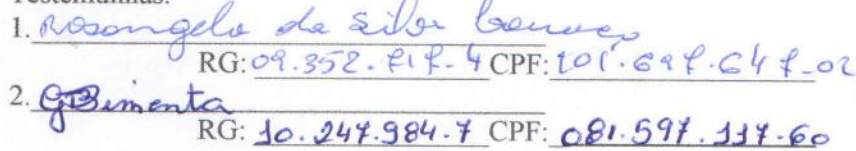 Testemunhas:
1. Rosangela da Silva
RG: 09.352.717-4 CPF:
2. GPimenta
RG: 10.247.984-7 CPF: 081.597.117-60